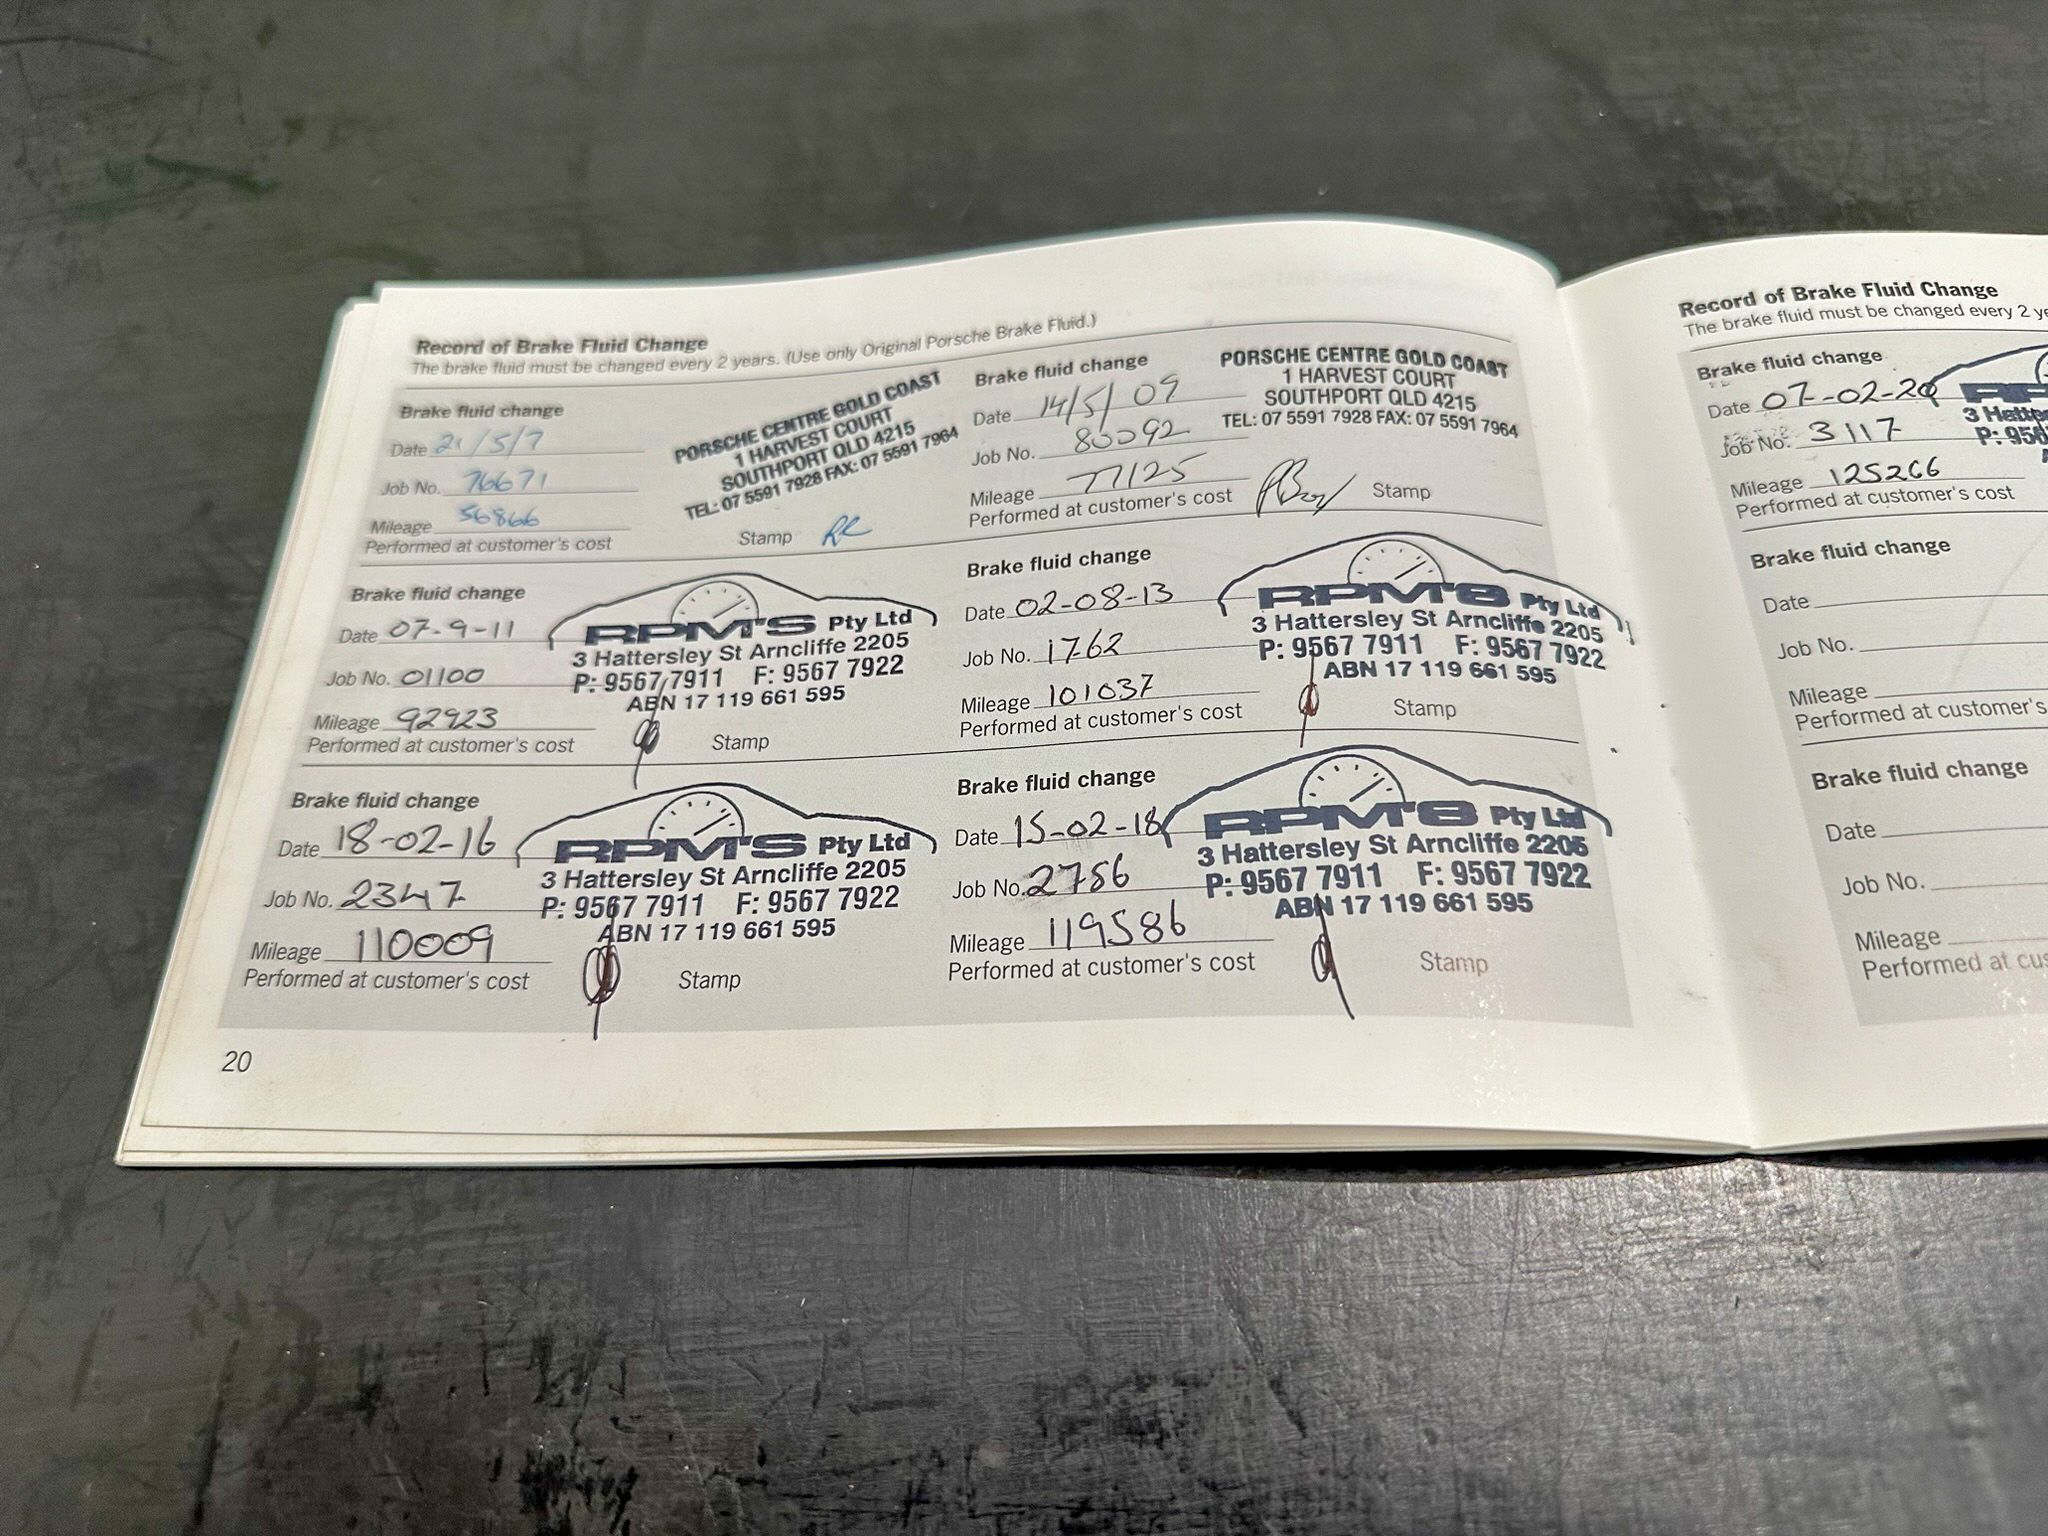 Record of Brake Fluid Change
The brake fluid must be changed every 2 years. (Use only Original Porsche Brake Fluid.)
Brake fluid change
Date 21/5/7
Job No. 76671
Mileage 56866
Performed at customer's cost
PORSCHE CENTRE GOLD COAST
1 HARVEST COURT
SOUTHPORT QLD 4215
TEL: 07 5591 7928 FAX: 07 5591 7964
Stamp
Brake fluid change
Date 14/5/09
Job No. 80092
Mileage 77125
Performed at customer's cost
PORSCHE CENTRE GOLD COAST
1 HARVEST COURT
SOUTHPORT QLD 4215
TEL: 07 5591 7928 FAX: 07 5591 7964
Stamp
Brake fluid change
Date 07-9-11
Job No. 01100
Mileage 92923
Performed at customer's cost
RPM'S Pty Ltd
3 Hattersley St Arncliffe 2205
P: 9567 7911 F: 9567 7922
ABN 17 119 661 595
Stamp
Brake fluid change
Date 02-08-13
Job No. 1762
Mileage 101037
Performed at customer's cost
RPM'S Pty Ltd
3 Hattersley St Arncliffe 2205
P: 9567 7911 F: 9567 7922
ABN 17 119 661 595
Stamp
Brake fluid change
Date 18-02-16
Job No. 2347
Mileage 110009
Performed at customer's cost
RPM'S Pty Ltd
3 Hattersley St Arncliffe 2205
P: 9567 7911 F: 9567 7922
ABN 17 119 661 595
Stamp
Brake fluid change
Date 15-02-18
Job No. 2786
Mileage 119586
Performed at customer's cost
RPM'S Pty Ltd
3 Hattersley St Arncliffe 2205
P: 9567 7911 F: 9567 7922
ABN 17 119 661 595
Stamp
20
Record of Brake Fluid Change
The brake fluid must be changed every 2
Brake fluid change
Date 07-02-20
Job No. 3117
Mileage 125266
Performed at customer's cost
3
P: 956
Brake fluid change
Date
Job No.
Mileage
Performed at customer's
Brake fluid change
Date
Job No.
Mileage
Performed at